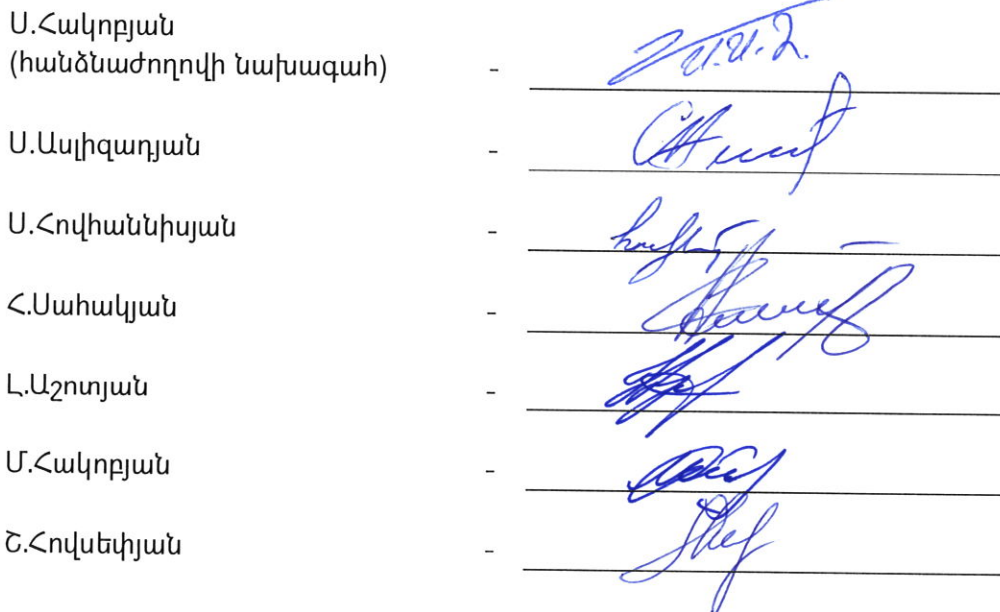 Ս.Հակոբյան
(հանձնաժողովի նախագահ) -
Ս.Ասլիզադյան -
Ս.Հովհաննիսյան -
Հ.Սահակյան -
Լ.Աշոտյան -
Մ.Հակոբյան -
Շ.Հովսեփյան -